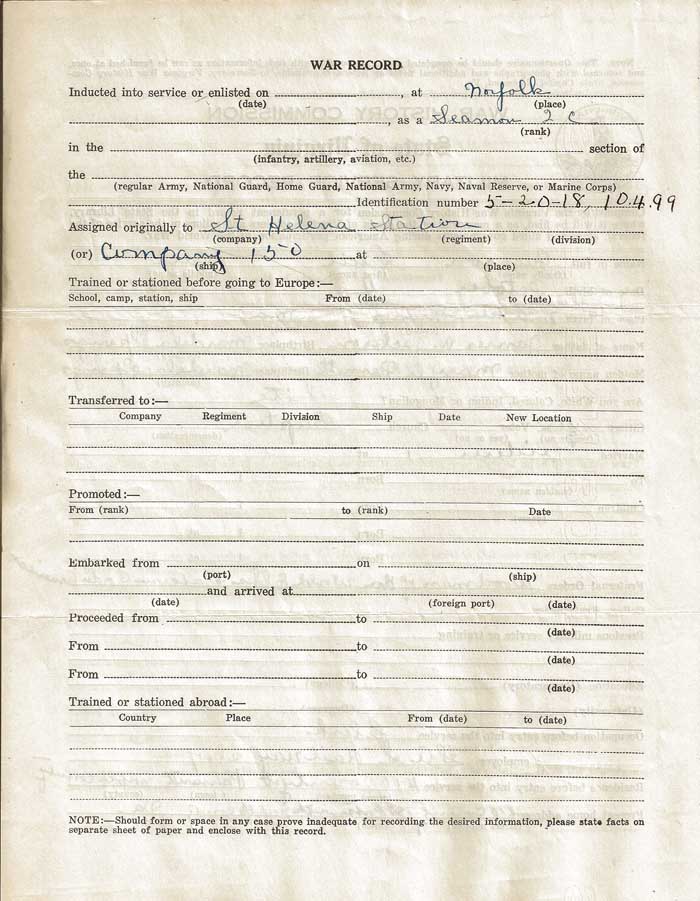 WAR RECORD
Inducted into service or enlisted on , at Norfolk
(date) (place)
, as a Seamon 2 C
(rank)
in the section of
(infantry, artillery, aviation, etc.)
the
(regular Army, National Guard, Home Guard, National Army, Navy, Naval Reserve, or Marine Corps)
Identification number 5-20-18, 10.4.99
Assigned originally to St Helena Station
(company) (regiment) (division)
(or) Company 150 at
(ship) (place)
Trained or stationed before going to Europe:—
School, camp, station, ship From (date) to (date)
Transferred to:—
Company Regiment Division Ship Date New Location
Promoted:—
From (rank) to (rank) Date
Embarked from on
(port) (ship)
and arrived at
(date) (foreign port) (date)
Proceeded from to
(date)
From to
(date)
From to
(date)
Trained or stationed abroad:—
Country Place From (date) to (date)
NOTE:—Should form or space in any case prove inadequate for recording the desired information, please state facts on
separate sheet of paper and enclose with this record.